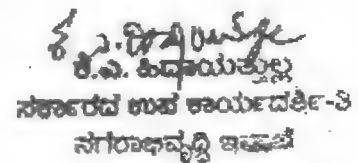 ಕೆ.ಎ. ಹಿದಾಯತ್ತುಲ್ಲ
ಸರ್ಕಾರದ ಉಪ ಕಾರ್ಯದರ್ಶಿ-3
ನಗರಾಭಿವೃದ್ಧಿ ಇಲಾಖೆ